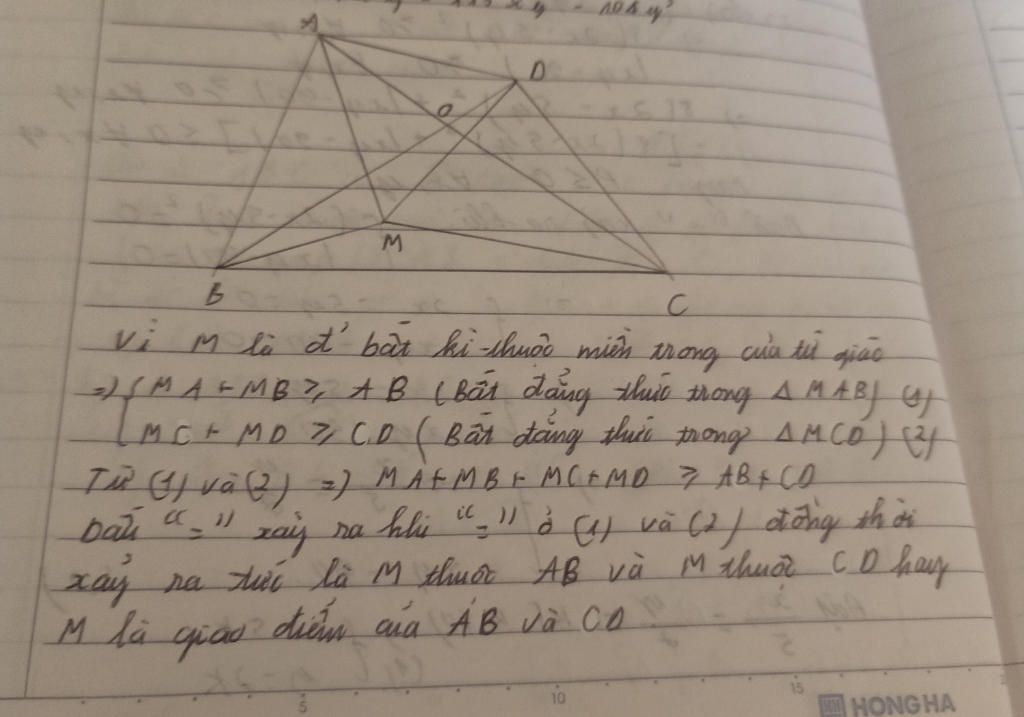 A
D
O
M
B
C
Vì M là đ' bất kì thuộc miền trong của tứ giác
=> { MA + MB ≥ AB (Bất đẳng thức trong Δ MAB) (1)
MC + MD ≥ CD (Bất đẳng thức trong Δ MCD) (2)
Từ (1) và (2) => MA + MB + MC + MD ≥ AB + CD
Dấu "=" xảy ra khi "=" ở (1) và (2) đồng thời
xảy ra tức là M thuộc AB và M thuộc CD hay
M là giao điểm của AB và CD
5
10
15
HONG HA